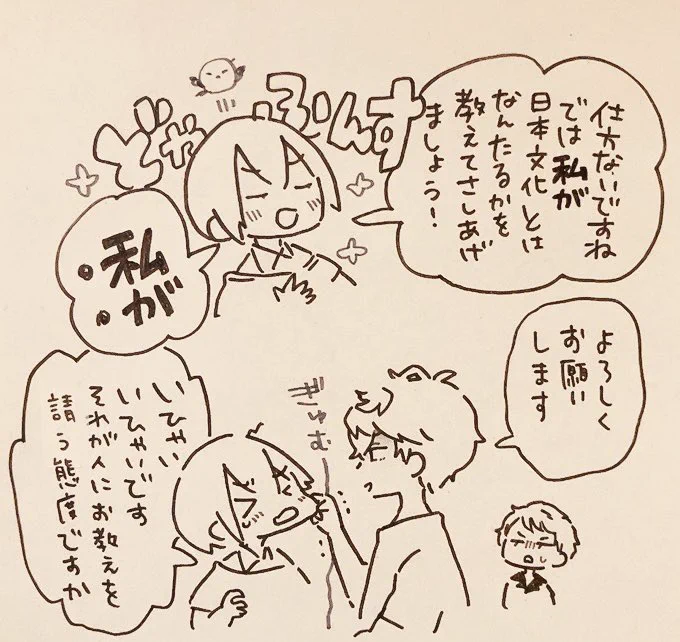 仕方ないですね
では私が
日本文化とは
なんたるかを
教えてさしあげ
ましょう!
ふんす
どゃ
私が
よろしく
お願い
します
ぎゅむ
いひゃい
いひゃいです
それが人にお教えを
請う態度ですか